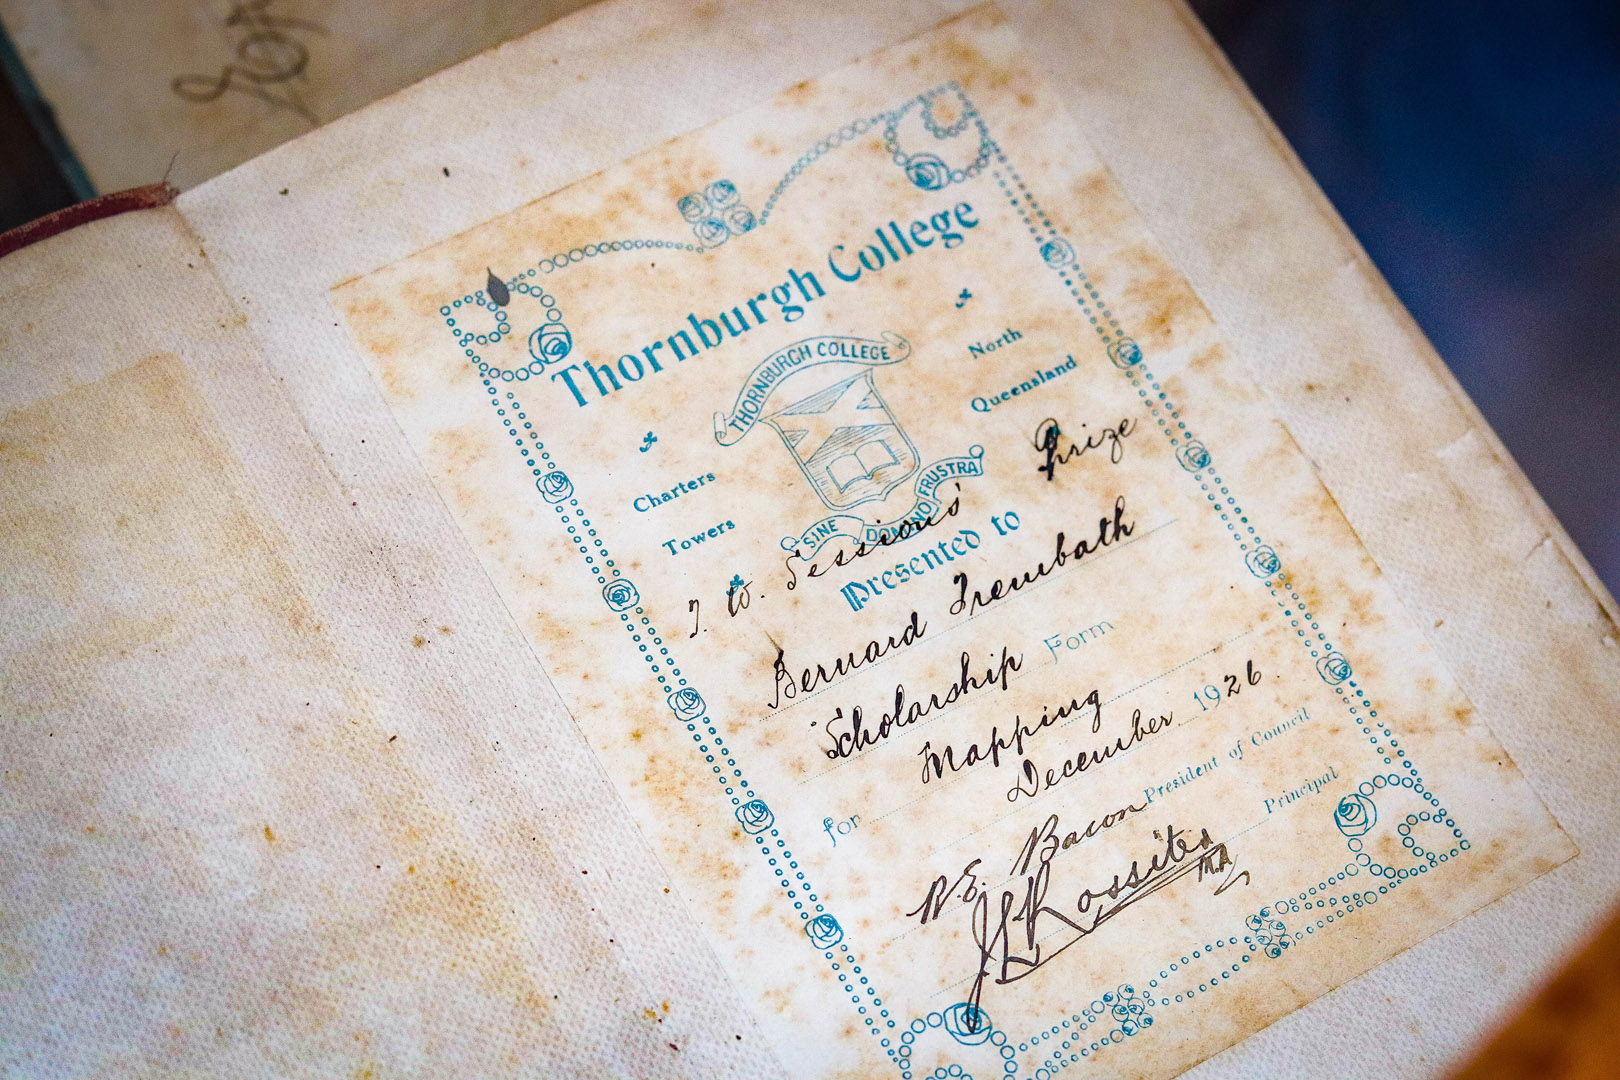 Thornburgh College
THORNBURGH COLLEGE
Charters
Towers
North
Queensland
SINE DOMINO FRUSTRA
Sessions' Prize
Presented to
Bernard Trembath
Scholarship Form
for Mapping
December 1926
R.E. Bacon President of Council
Rossiter M.A. Principal